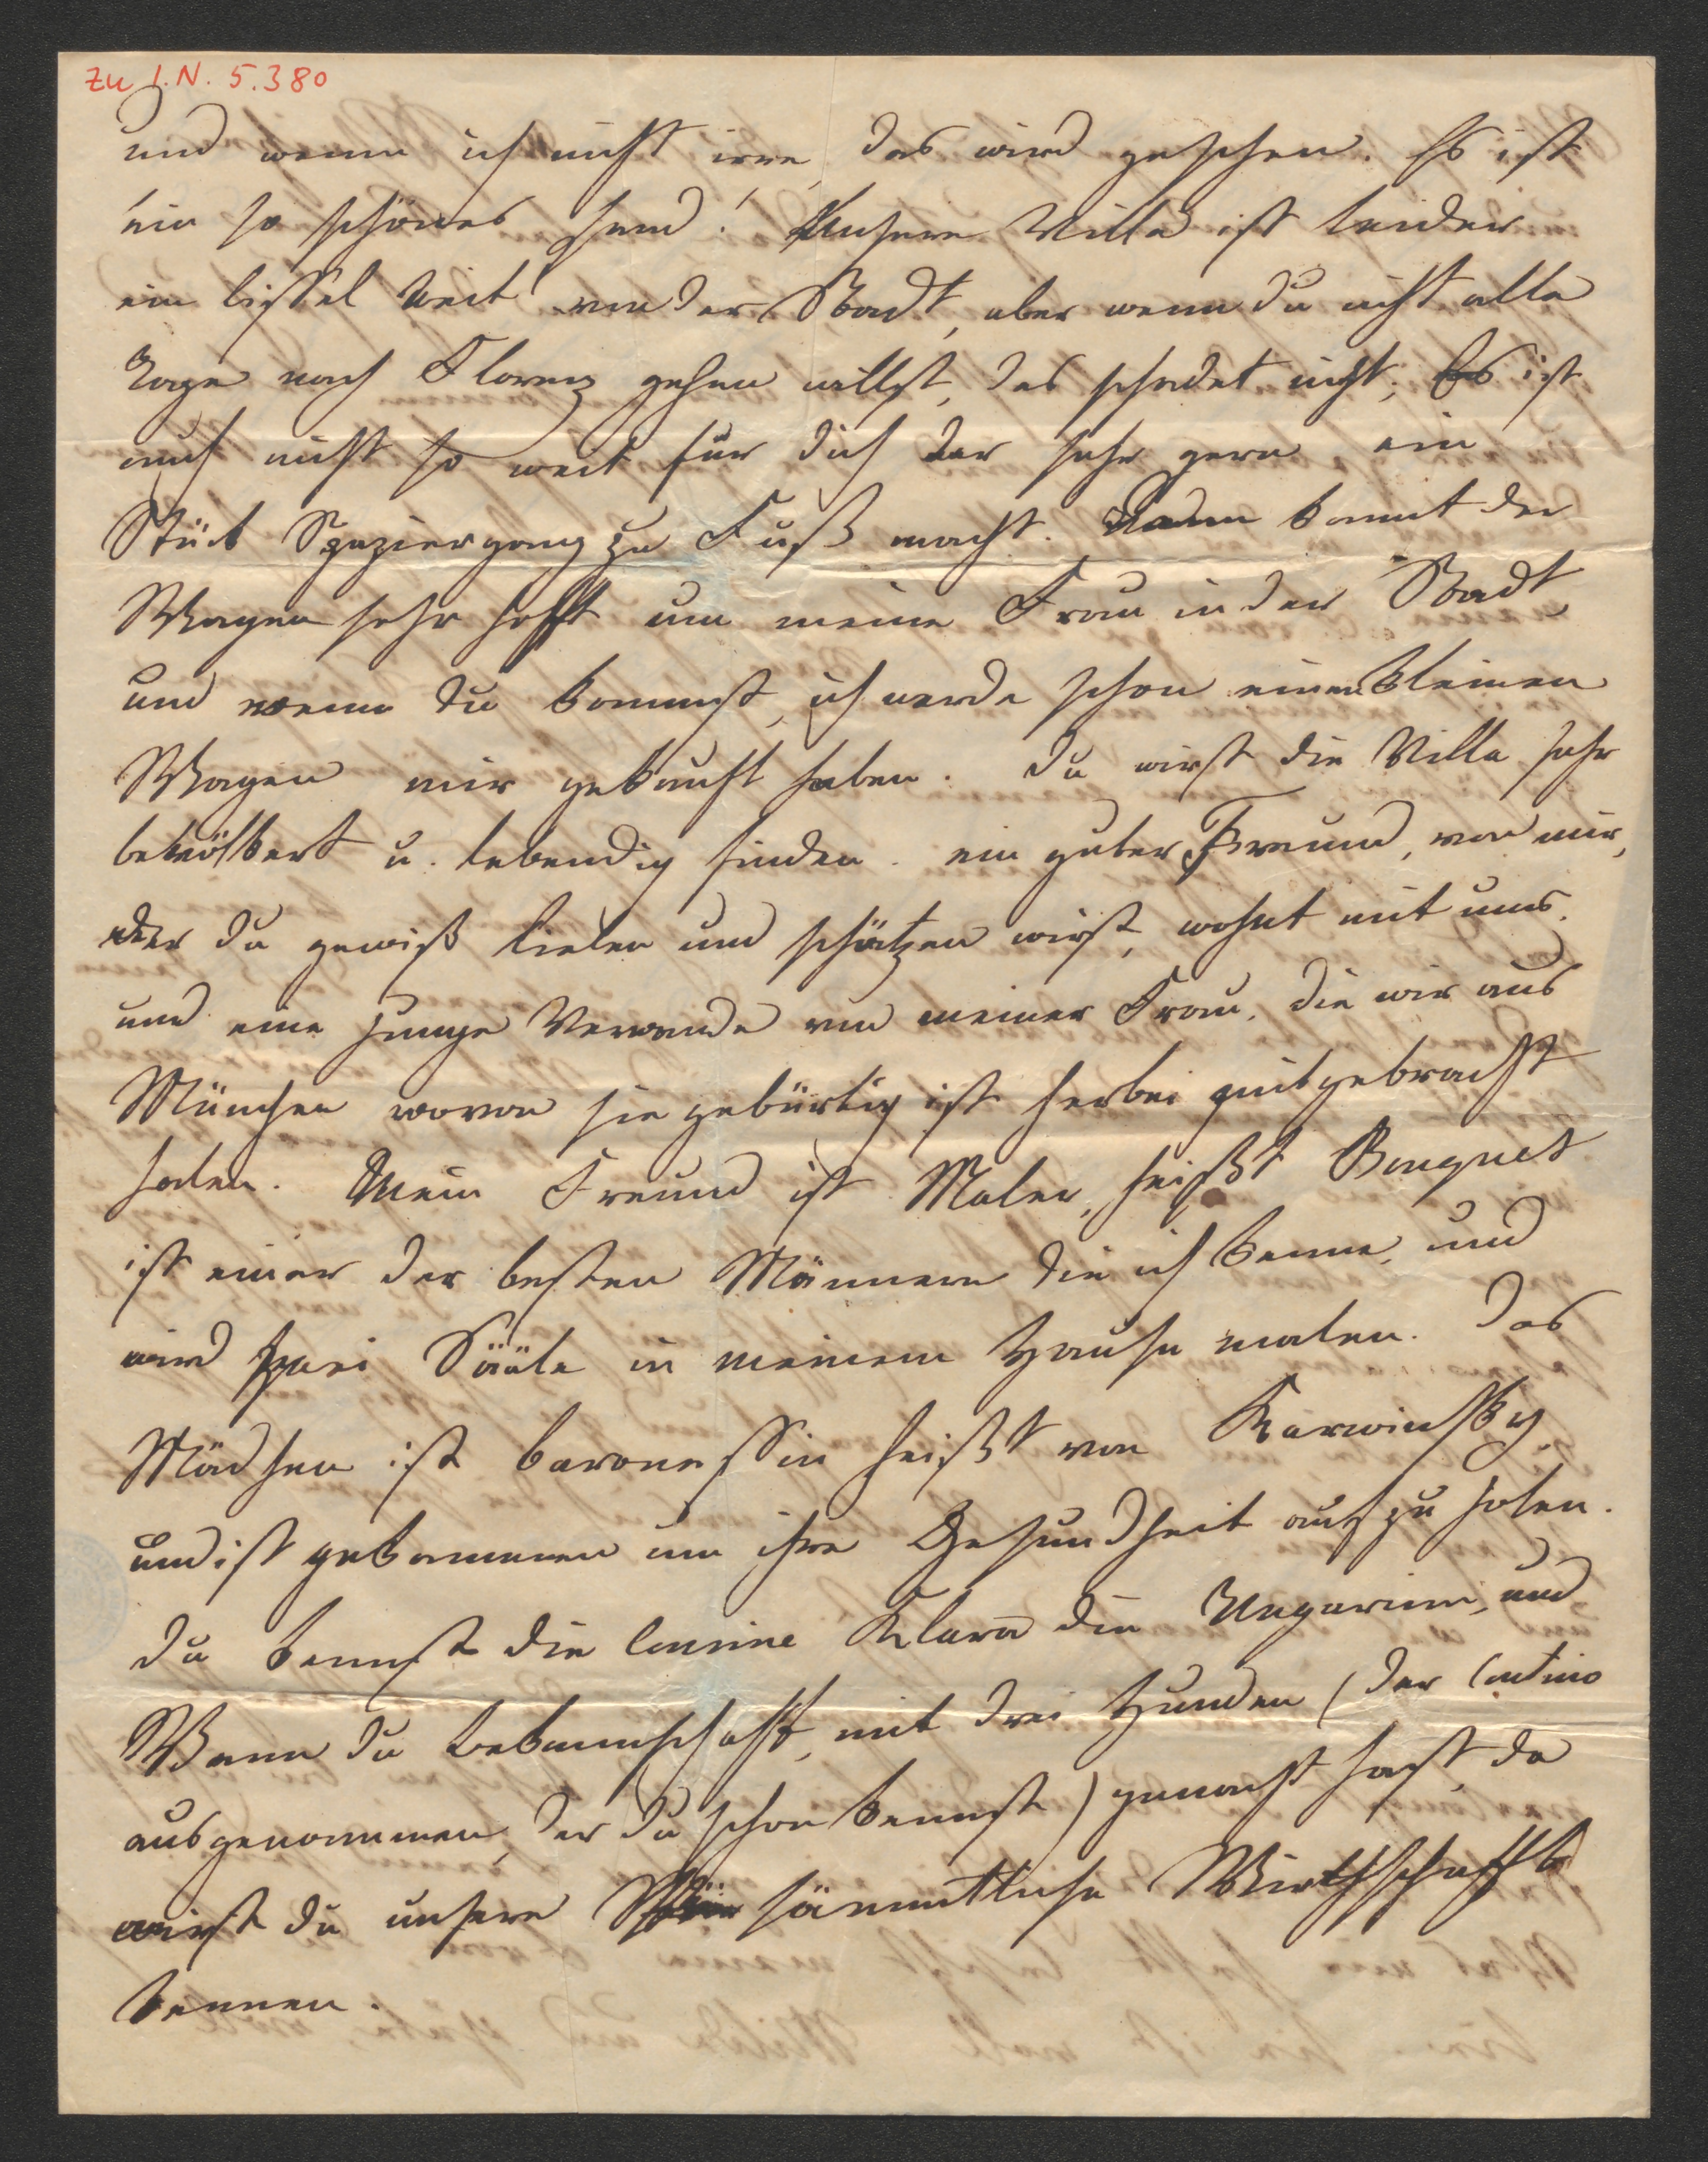 zu I.N. 5.380
und wenn ich nicht irre, das wird geschehen. Es ist
ein so schönes Land! Unsere Villa ist leider
ein bissel weit von der Stadt, aber wenn du nicht alle
Tage nach Florenz gehen willst, das schadet nicht; Es ist
auch nicht so weit für dich der sehr gern ein
Stück Spaziergang zu Fuß macht. Dann kommt der
Wagen sehr offt um meine Frau in der Stadt
und wenn du kommst, ich werde schon einen kleinen
Wagen mir gekauft haben. Du wirst die Villa sehr
bevölkert u. lebendig finden. ein guter Freund, von mir,
der du gewiß lieben und schätzen wirst, wohnt mit uns.
und eine junge Verwande von meiner Frau, die wir aus
München wovon sie gebürtig ist herbei mitgebracht
haben. Mein Freund ist Maler, heißt Bouquet
ist einer der besten Männern die ich kenne, und
wird zwei Sääle in meinem Hause malen. Das
Mädchen ist baronessin heißt von Karwinsky
und ist gekommen um ihre Gesundheit auf zu holen.
du kennst die Cousine Klara die Ungarinn, und
Wenn du bekannschafft, mit drei Hunden (der Contino
ausgenommen, der du schon kennst) gemacht hast, da
wirst du unsere sämmtliche Wirthschaffts
kennen.